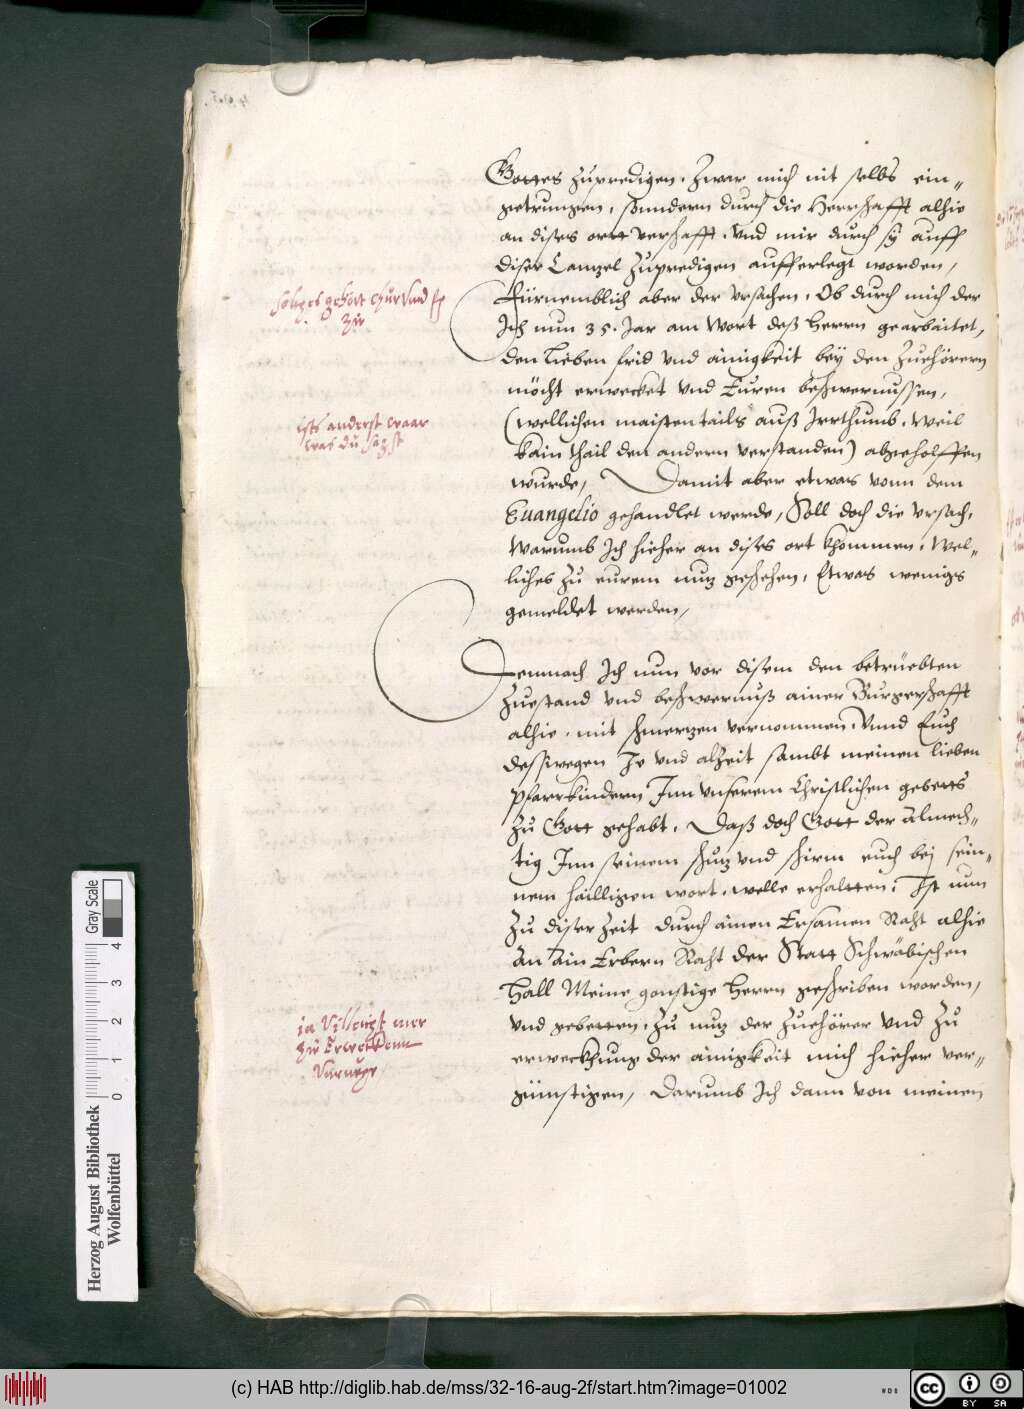 Gottes zupredigen. Zwar mich nit selbs ein„
getrungen, sonndern durch die Herrschafft alhie
an dises ortt verschafft. Vnd mir durch sy auff
diser Cantzel zupredigen aufferlegt worden,
Fürnemblich aber der vrsachen, Ob durch mich der
Jch nun 35. Jar am Wort deß Herrn gearbaitet,
den lieben frid vnd ainigkeit beÿ den Zuehörern
möcht erwecket vnd Euren beschwernussen,
(wellichen maistentails auß Jrrthumb, Weil
kain thail den andern verstanden) abgeholffen
wurde, Damit aber etwas vonn dem
Euangelio gehandlet werde, Soll doch die vrsach,
Warumb Jch hieher an dises ort khommen, Wel„
liches zu eurem nutz geschehen, Etwas weniges
gemeldet werden,
solches gehört
ists anderst waar
was du sagst
Demnach Jch nun vor disem den betrüebten
Zuestand vnd beschwernuß ainer Burgerschafft
alhie, mit schmertzen vernommen, Vnnd Euch
desswegen Je vnd alzeit sambt meinen lieben
Pfarrkindern Jnn vnserem Christlichen gebetts
zu Gott gehabt, Daß doch Gott der Almech„
tig Jnn seinem schutz vnd schirm euch bei sein„
nem hailligen wort, welle erhaltten, Jst nun
zu diser Zeit durch ainen Ersamen Raht alhie
An Ain Erbern Raht der Statt Schwäbischen
Hall Meine gonstige Herrn geschriben worden,
vnd gebetten, zu nutz der Zuehörer vnd zu
erweckhung der ainigkeit mich hieher ver„
günstigen, Darumb Jch dann von meinen
ja
zur
Herzog August Bibliothek
Wolfenbüttel
Gray Scale
0 1 2 3 4
(c) HAB http://diglib.hab.de/mss/32-16-aug-2f/start.htm?image=01002
WDB
cc BY SA